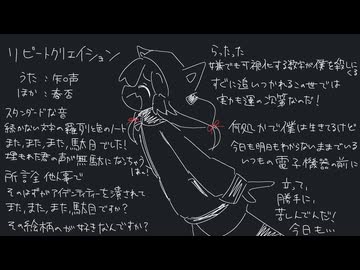 リピートクリエイション
うた：知声
ほか：香奈
スタンダードな音
続かない文字の羅列と色のノート
また、また、また、駄目でした！
埋もれた君の声が無駄になっちゃうねー、
所詮他人事で
そのはずがアイデンティティーを潰されて
また、また、また、駄目ですか？
その絵柄のが好きなんですか？
らった、った
嫌でも可視化する数字が僕を殺しにくる
すぐに追いつかれるこの世では
実力も運の次第なのだ！
何処かで僕は生きてるけど
今日も明日もわからないままでいる
いつもの電子機器の前に
立って、
勝手に
苦しんでんだ！
今日も…